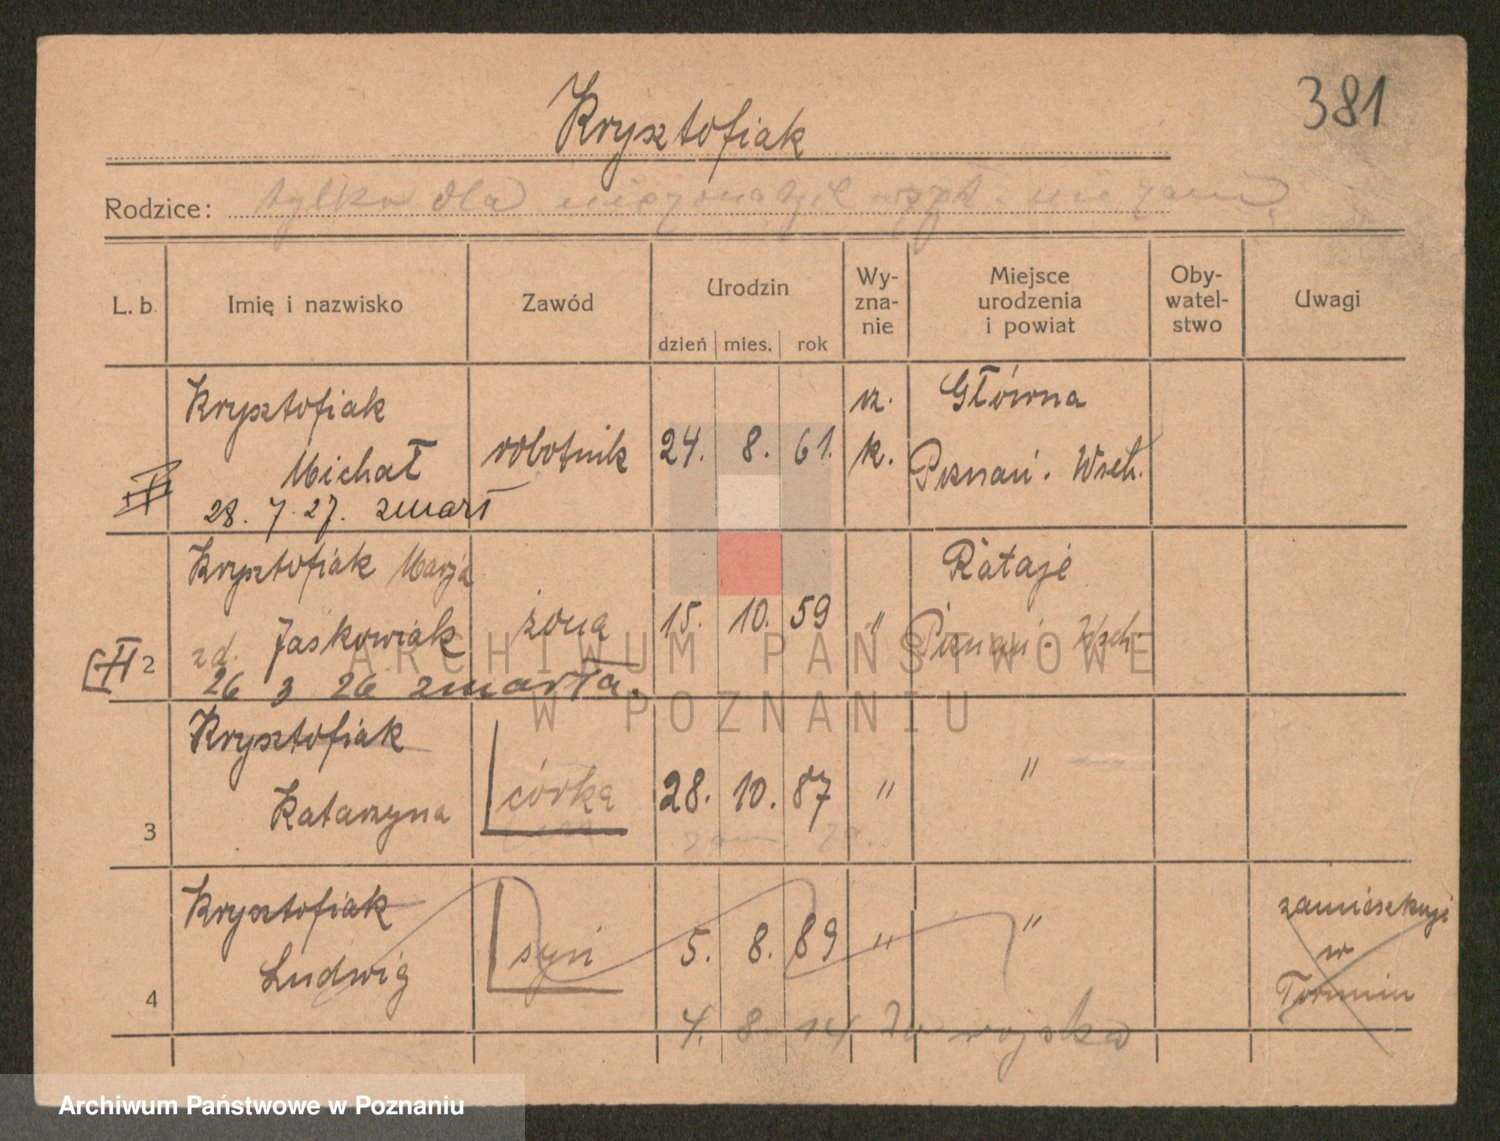 381
Krysztofiak
Rodzice: tylko dla
L. b. Imię i nazwisko Zawód Urodzin Wy-zna-nie Miejsce urodzenia i powiat Oby-watel-stwo Uwagi
dzień mies. rok
Krysztofiak rz. Główna
Michał robotnik 24. 8. 61. k. Poznań. Wsch.
28. 7. 27. zmarł
Krysztofiak Marja Rataje
2 zd. Jaśkowiak żona 15. 10. 59 " Poznań. Wsch.
26 3 26 zmarła.
Krysztofiak
3 Katarzyna córka 28. 10. 87 " "
Krysztofiak zamieszkuje
4 Ludwig syn 5. 8. 89 " " w
Toruniu
4. 8. 14 do wojska
ARCHIWUM PAŃSTWOWE
W POZNANIU
Archiwum Państwowe w Poznaniu